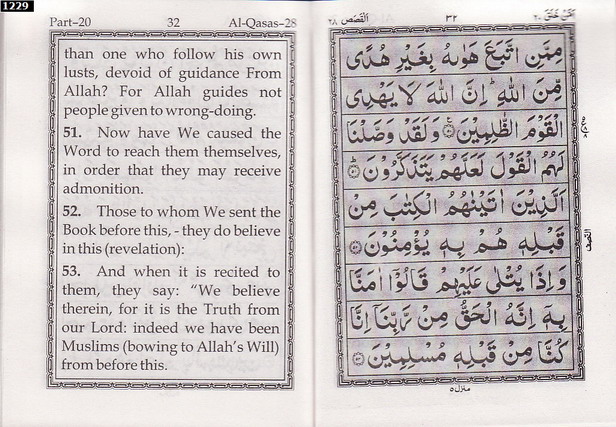 1229
Part-20 32 Al-Qasas-28
than one who follow his own
lusts, devoid of guidance From
Allah? For Allah guides not
people given to wrong-doing.
51. Now have We caused the
Word to reach them themselves,
in order that they may receive
admonition.
52. Those to whom We sent the
Book before this, - they do believe
in this (revelation):
53. And when it is recited to
them, they say: “We believe
therein, for it is the Truth from
our Lord: indeed we have been
Muslims (bowing to Allah’s Will)
from before this.
اَلْقَصَص ٢٨ ٣٢ اَمَّنْ خَلَقَ ٢٠
مِمَّنِ اتَّبَعَ هَوٰىهُ بِغَيْرِ هُدًى
مِّنَ اللّٰهِ ؕ اِنَّ اللّٰهَ لَا يَهْدِى
الْقَوْمَ الظّٰلِمِيْنَ ۝٥٠ وَلَقَدْ وَصَّلْنَا
لَهُمُ الْقَوْلَ لَعَلَّهُمْ يَتَذَكَّرُوْنَ ۝٥١
اَلَّذِيْنَ اٰتَيْنٰهُمُ الْكِتٰبَ مِنْ
قَبْلِهٖ هُمْ بِهٖ يُؤْمِنُوْنَ ۝٥٢
وَاِذَا يُتْلٰى عَلَيْهِمْ قَالُوْۤا اٰمَنَّا
بِهٖۤ اِنَّهُ الْحَقُّ مِنْ رَّبِّنَاۤ اِنَّا
كُنَّا مِنْ قَبْلِهٖ مُسْلِمِيْنَ ۝٥٣
منزل ٥